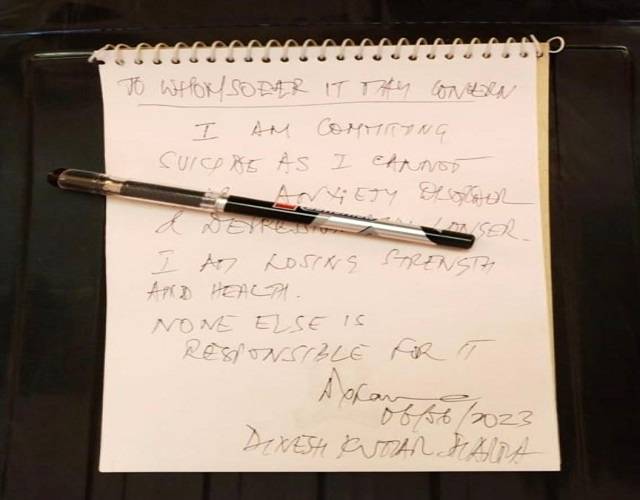 TO WHOMSOEVER IT MAY CONCERN
I AM COMMITTING
SUICIDE AS I CANNOT
ANXIETY DISORDER
& DEPRESSION LONGER.
I AM LOSING STRENGTH
AND HEALTH.
NONE ELSE IS
RESPONSIBLE FOR IT
06/06/2023
DINESH KUMAR